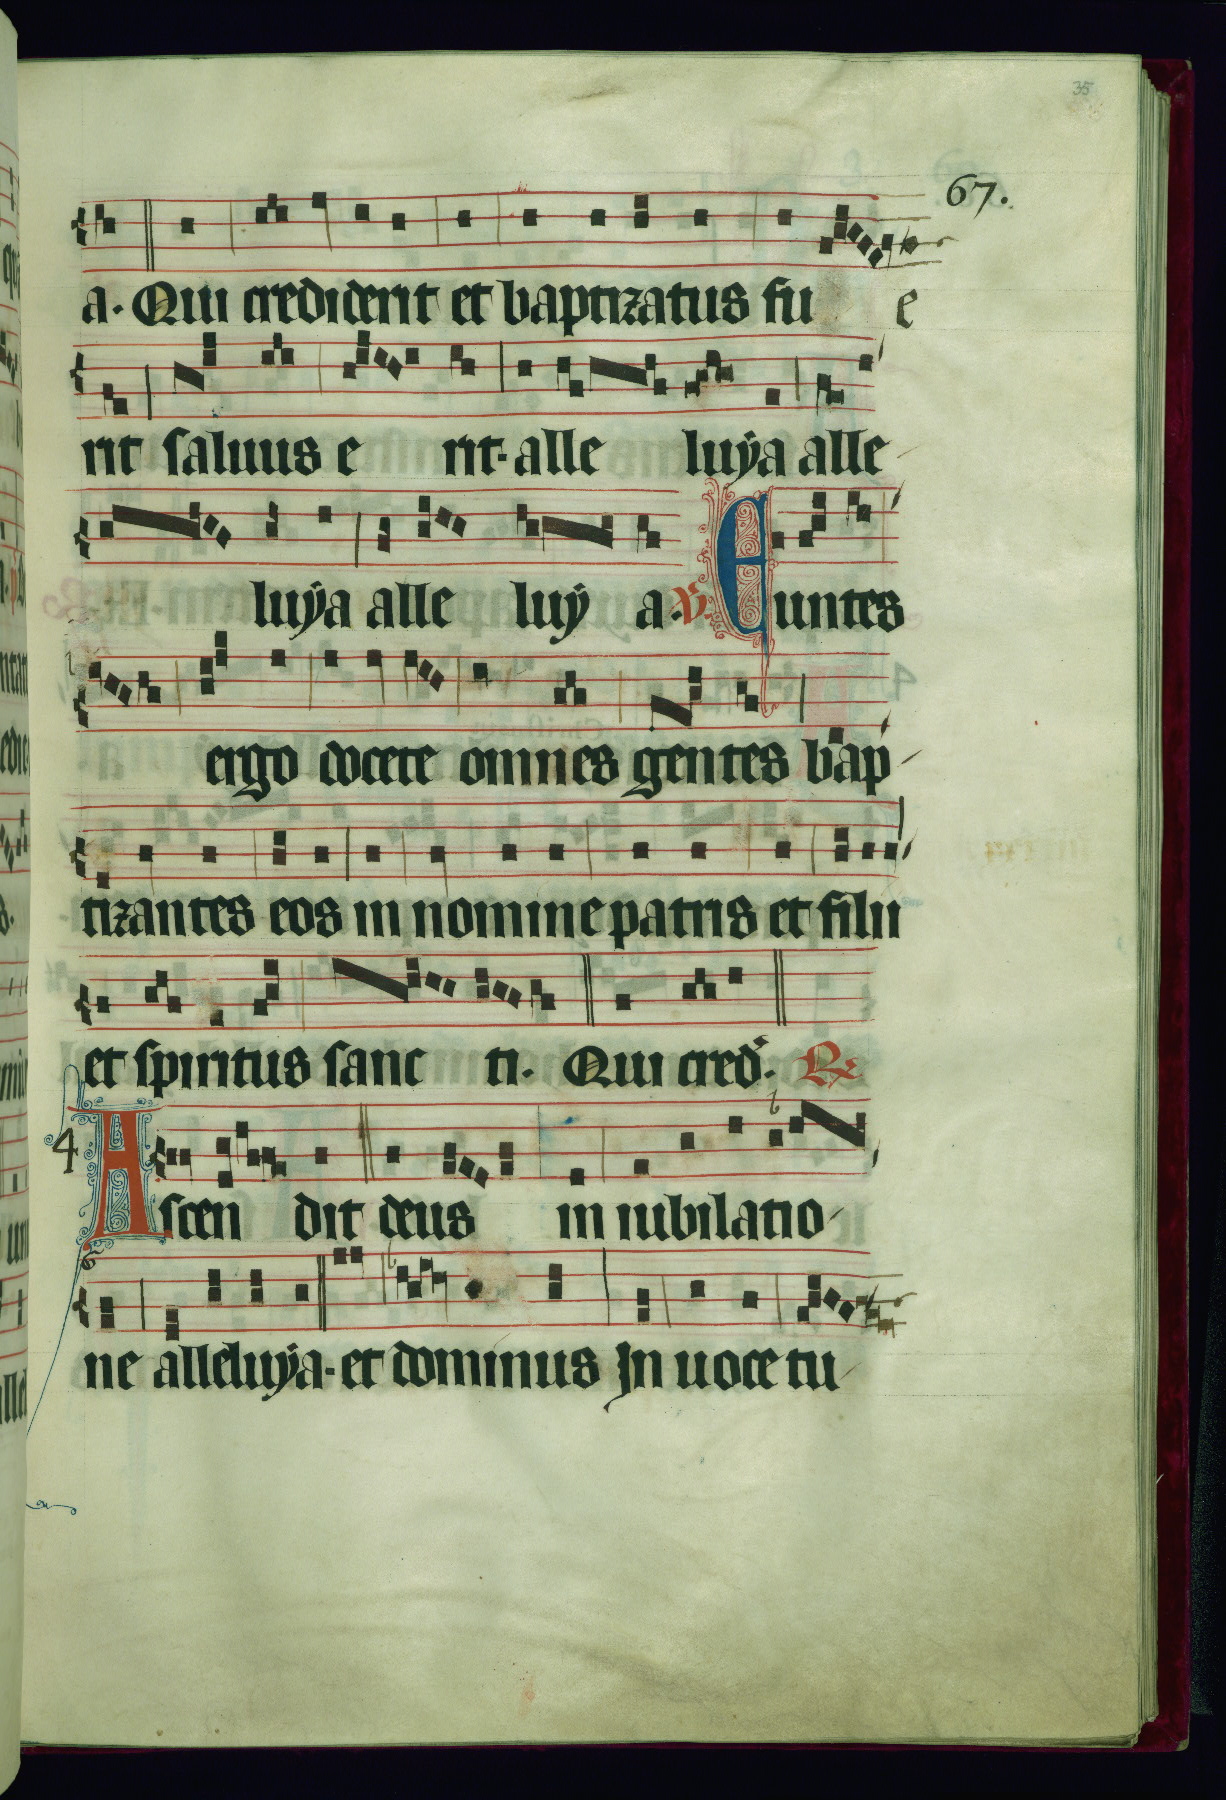 35
67.
a. Qui crediderit et baptizatus fu e
rit saluus e rit. alle luÿa alle
luÿa alle luÿ a. V. Euntes
ergo docete omnes gentes bap
tizantes eos in nomine patris et filii
et spiritus sanc ti. Qui cred. R
4 Ascen dit deus in iubilatio
ne alleluÿa. et dominus In uoce tu